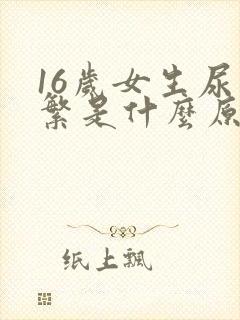 16歲女生尿
繁是什麼原
纸上飄